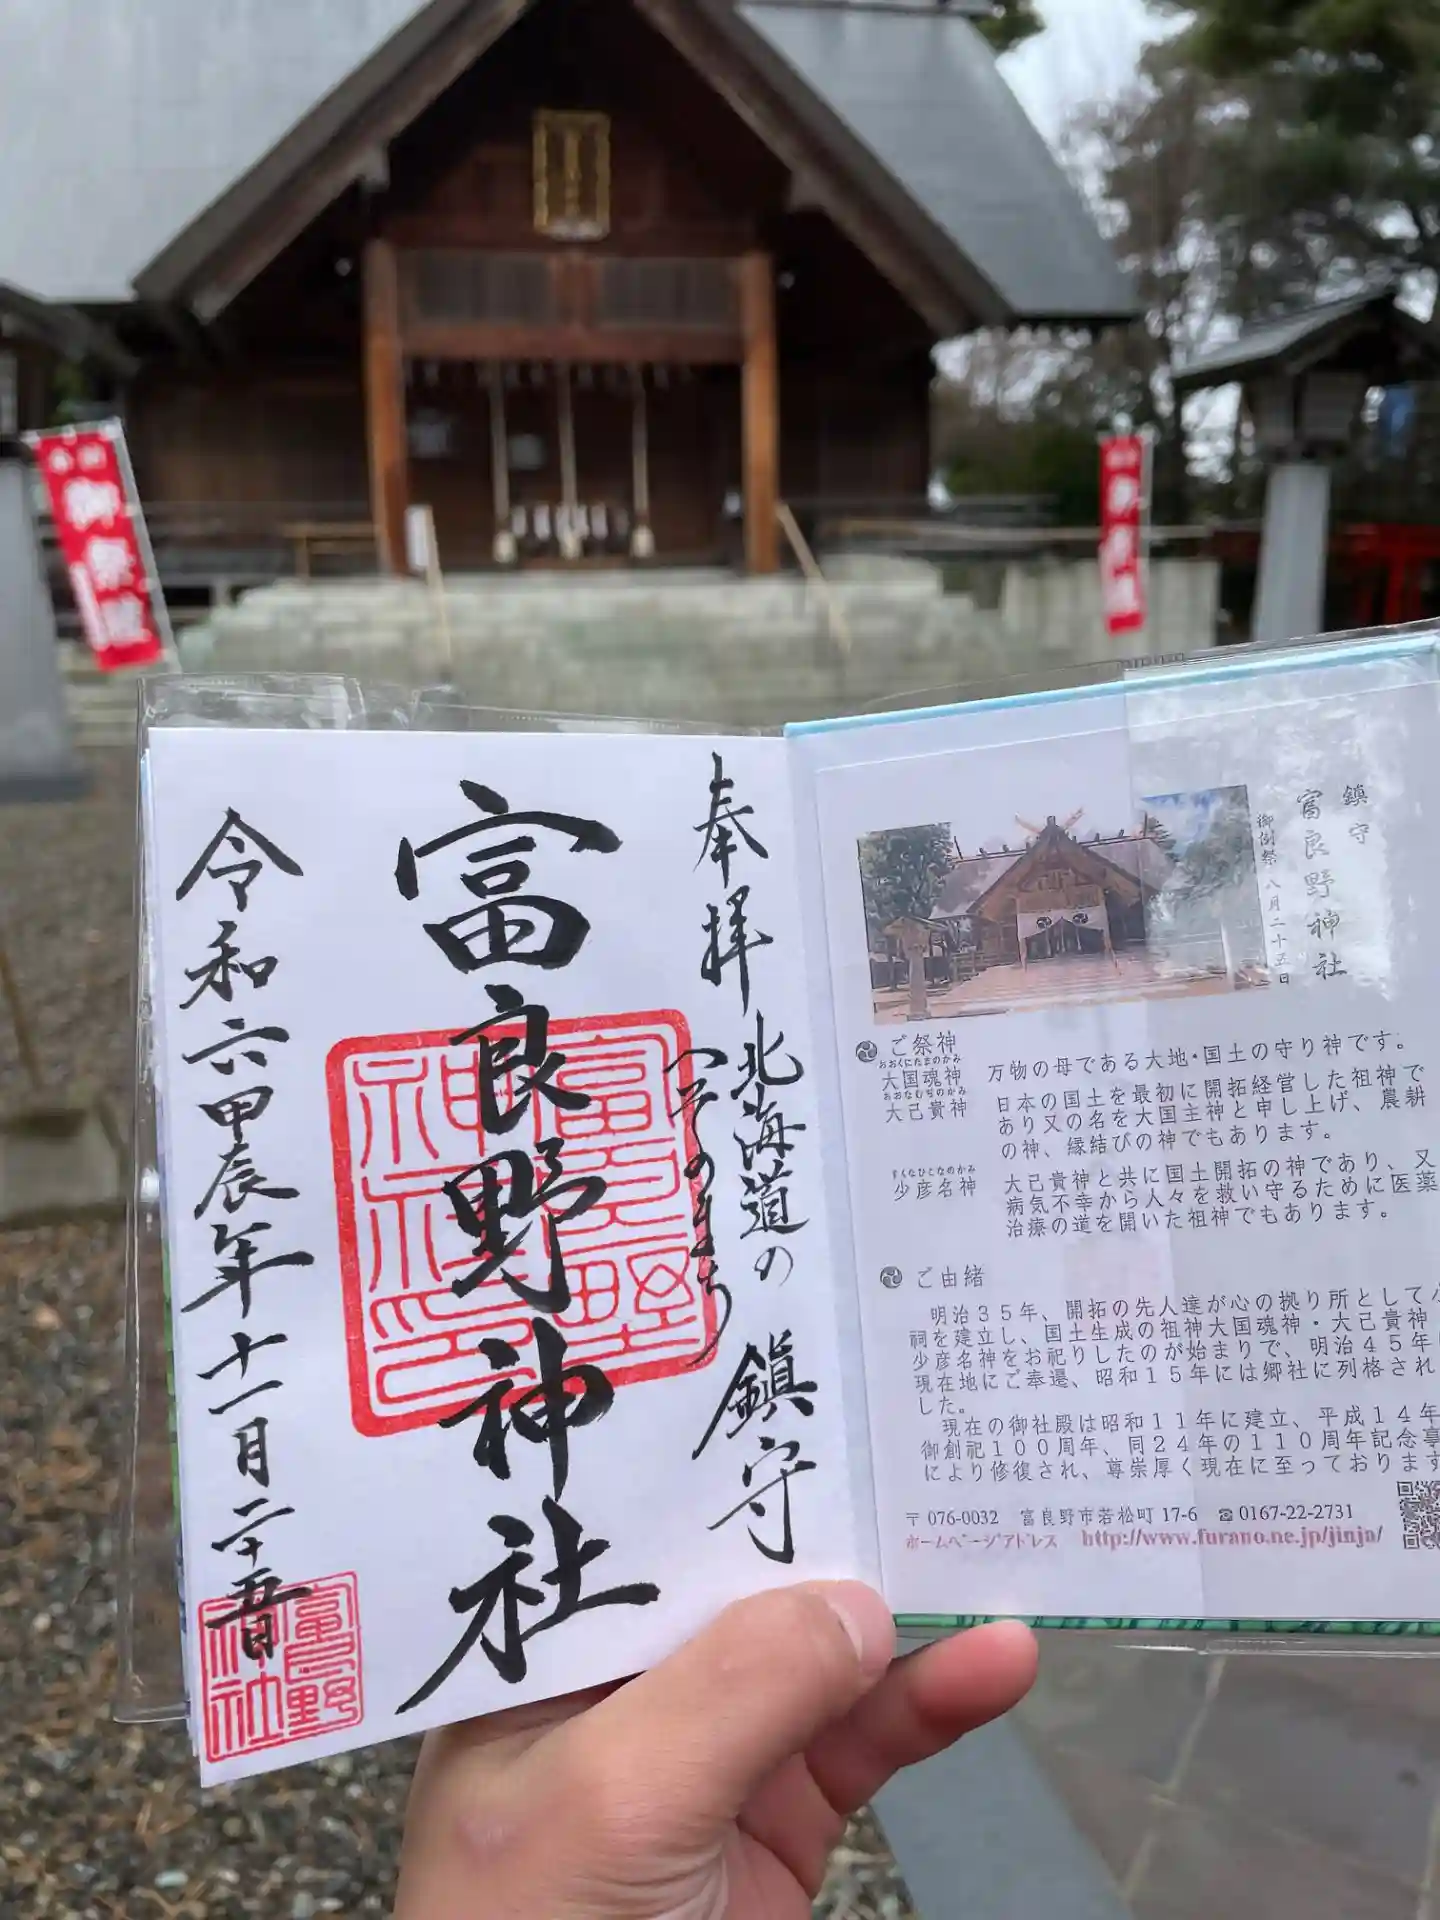 御祭禮
奉拝
北海道の
へそのまち
鎮守
富良野神社
令和六甲辰年十一月二十五日
富良野
神社印
富良野
神社
鎮守
富良野神社
御例祭 八月二十五日
ご祭神
おおくにたまのかみ
大国魂神
万物の母である大地・国土の守り神です。
おおなむぢのかみ
大己貴神
日本の国土を最初に開拓経営した祖神で
あり又の名を大国主神と申し上げ、農耕
の神、縁結びの神でもあります。
すくなひこなのかみ
少彦名神
大己貴神と共に国土開拓の神であり、又
病気不幸から人々を救い守るために医薬
治療の道を開いた祖神でもあります。
ご由緒
明治35年、開拓の先人達が心の拠り所として小
祠を建立し、国土生成の祖神大国魂神・大己貴神
少彦名神をお祀りしたのが始まりで、明治45年
現在地にご奉還、昭和15年には郷社に列格され
した。
現在の御社殿は昭和11年に建立、平成14年
御創祀100周年、同24年の110周年記念事
により修復され、尊崇厚く現在に至っております
〒076-0032 富良野市若松町17-6 ☎0167-22-2731
ホームページアドレス http://www.furano.ne.jp/jinja/